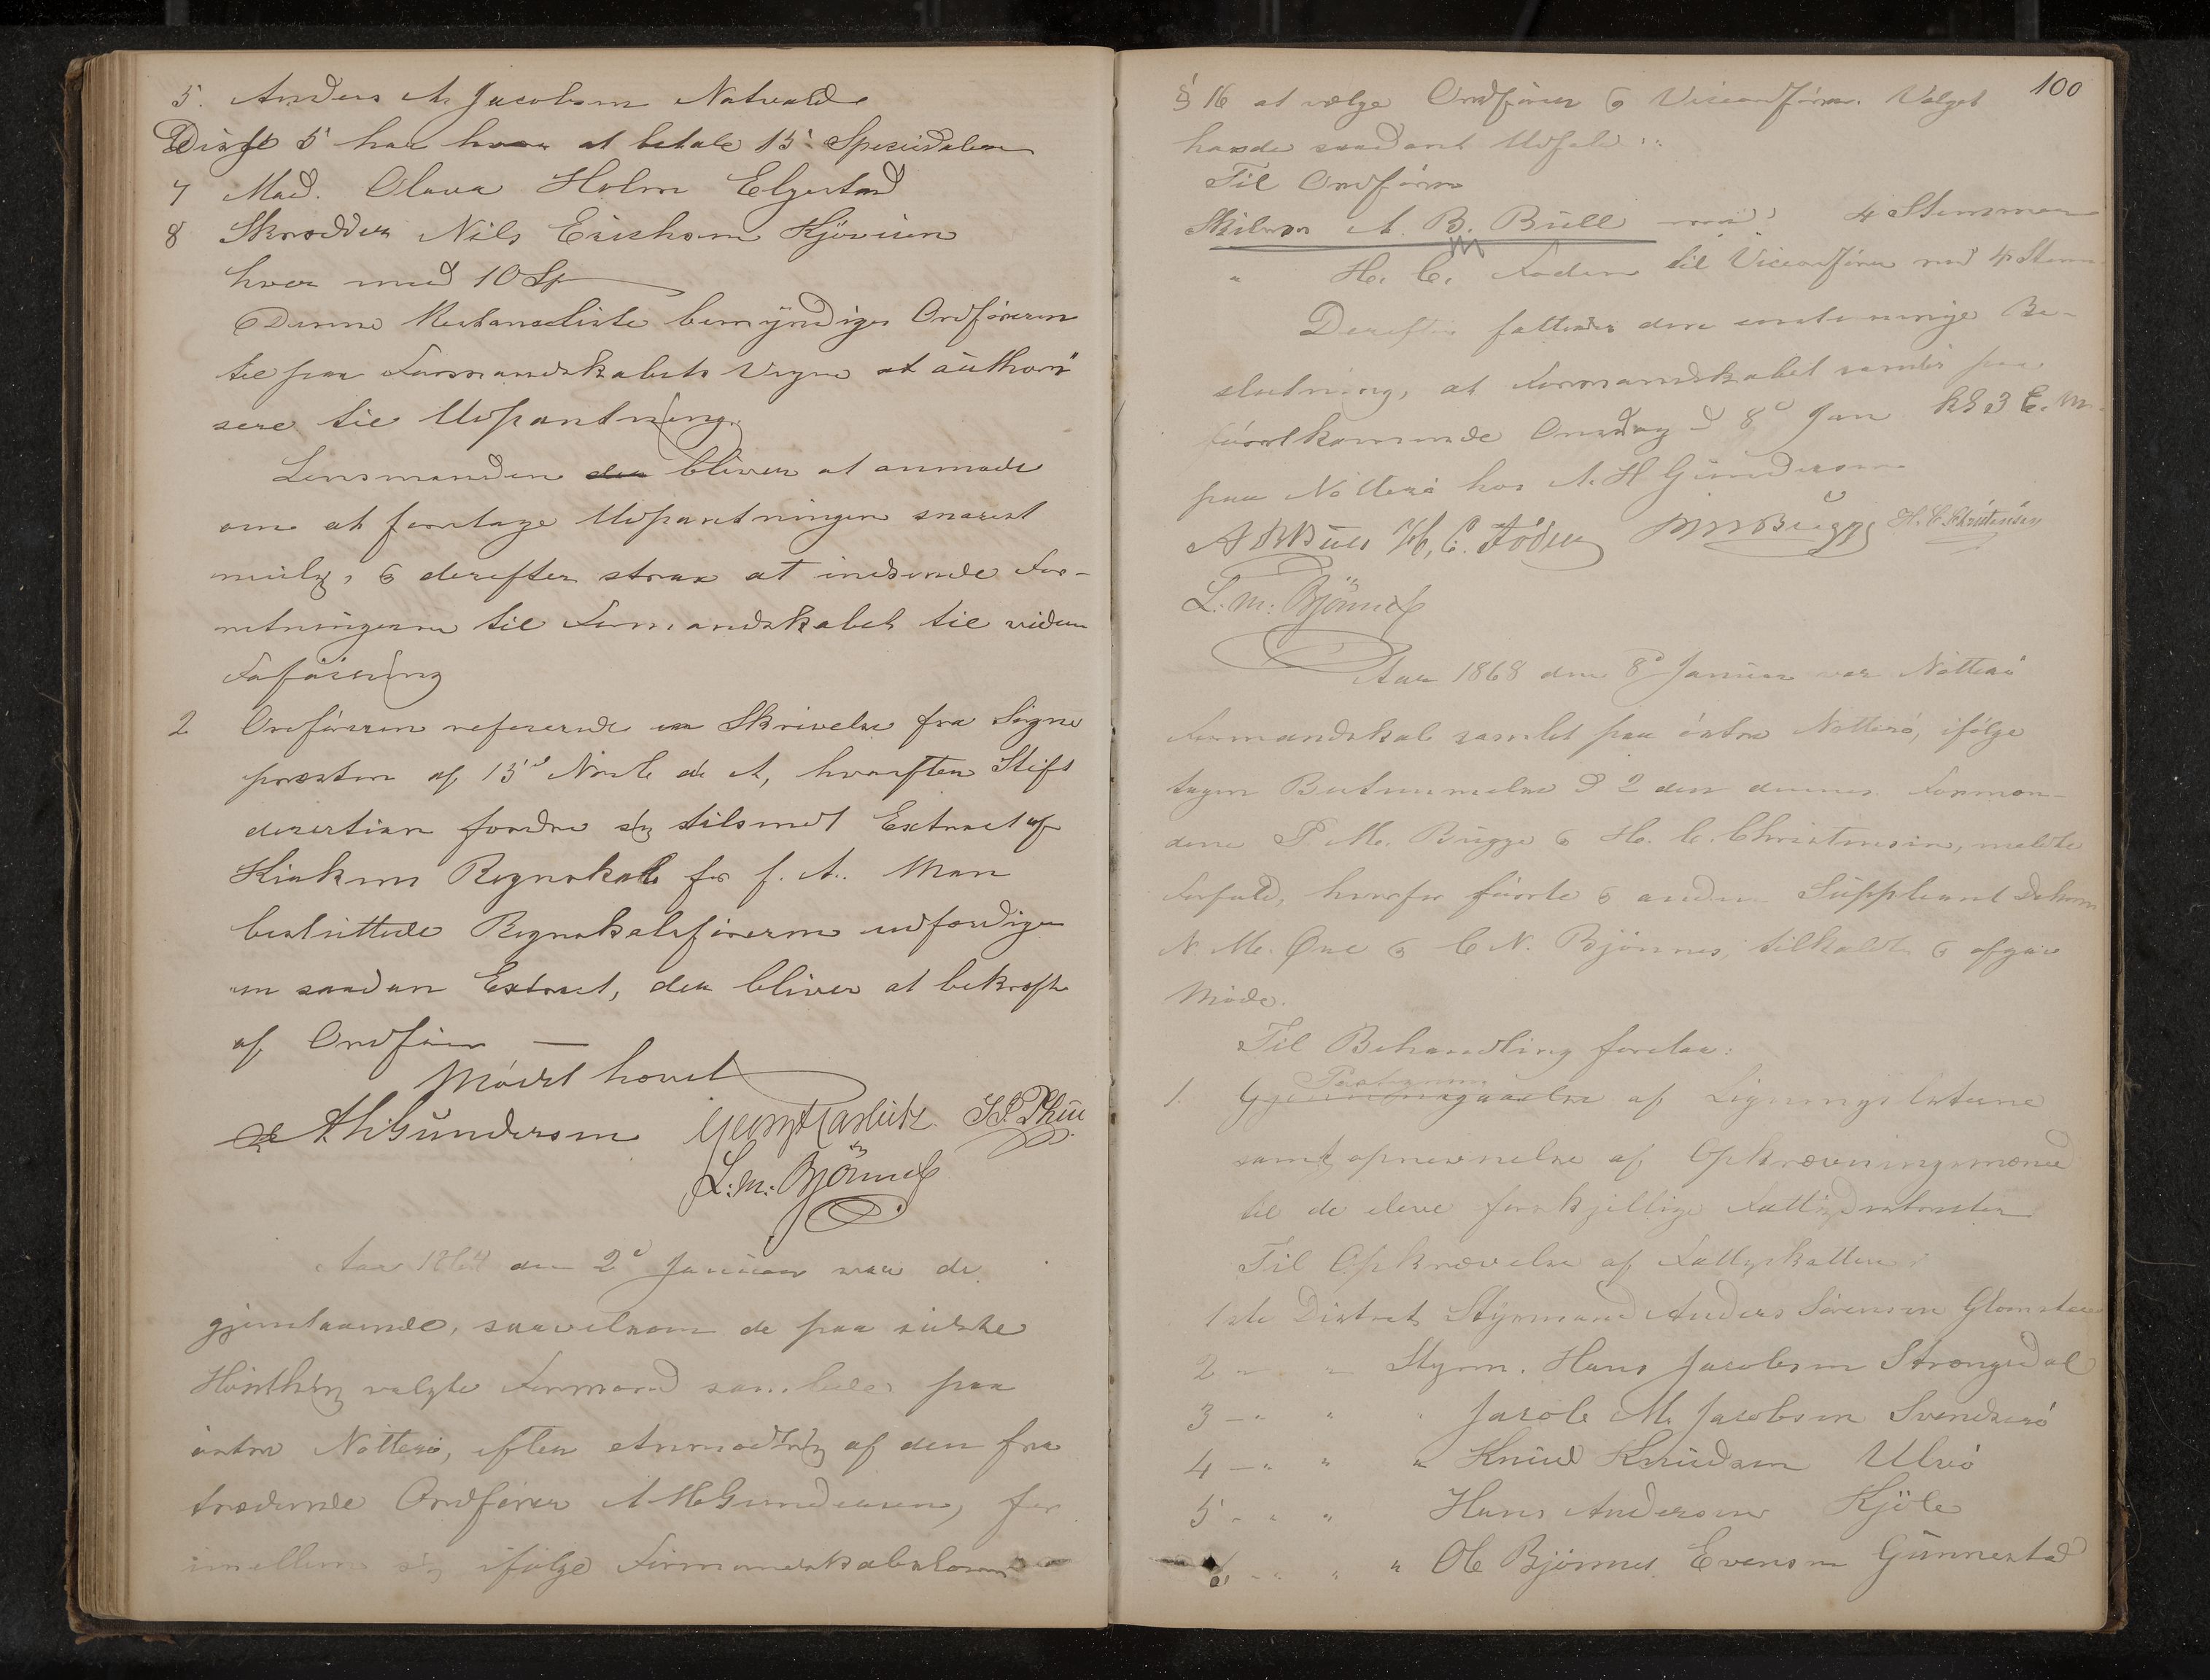 5. Anders A. Jacobsen Natvald
Disse 5 har hver at betale 15 Speciedaler
7 Mad. Olava Holm Elgestad
8 Skrædder Nils Erichsen
hver med 10 Sp
Denne Restanseliste bemyndiges Ordføreren
til paa Formandskabets Vegne at authori
sere til Udpantning.
Lensmanden bliver at anmode
om at foretage Udpantningen snarest
mulig, og derefter strax at indsende For-
retningerne til Formandskabet til videre
Føiening
2 Ordføreren refererede en Skrivelse fra Sogne
præsten af 15d Novb d. A, hvorefter Stifts
direction fordrer sig tilsendt Extract af
Kirkens Regnskab for f. A. Man
besluttede Regnskabsføreren udfærdiger
en saadan Extract, der bliver at bekræfte
af Ordfører —
Mødet hævet
A H Gundersen
L. M. Bjønnes
Aar 1868 den 2d Januar var de
gjenstaaende, saavelsom de paa sidste
valgte Formænd samlede paa
østre Nøtterø, efter Anmodning af den fra
trædende Ordfører A H Gundersen, for
imellem sig ifølge Formandskabsloven
100
§ 16 at vælge Ordfører og Viceordfører. Valget
havde saadant Udfald:
Til Ordfører
A. B. Bull med 4 Stemmer
" H. C. Foden til Viceordfører med 4 Stem
Derefter fattedes den enstemmige Be-
slutning, at Formandskabet samles paa
førstkommende Onsdag d 8d Jan Kl 3 E. M.
paa Nøtterø hos A. H Gundersen
H. C. Foden Bugge H. C. Christensen
L. M. Bjønnes
Aar 1868 den 8d Januar var Nøtterø
Formandskab samlet paa østre Nøtterø, ifølge
tagen Bestemmelse d 2den dennes. Formæn-
dene P. M. Bugge og H. C. Christensen, meldte
Forfald, hvorfor første og anden Suppleant
N. M. og C N. Bjønnes, tilkaldt og afgav
Møde.
Til Behandling forelaa:
1. Gjennemgaaelse af Ligningslisterne
samt opnevnelse af Opkrævningsmænd
til de elleve forskjellige Fattigdistrikter
Til Opkrævelse af Fattigskatten:
1ste District Styrmand Anders Sørensen Glomstein
2 " " Styrm. Hans Jacobsen Strængsdal
3 — " " " Jacob M. Jacobsen Svendserø
4 — " " " Knud Knudsen Ulvø
5 " " " Hans Andersen Kjøle
6 " " " Ole Bjønnes Evensen Gunnestad